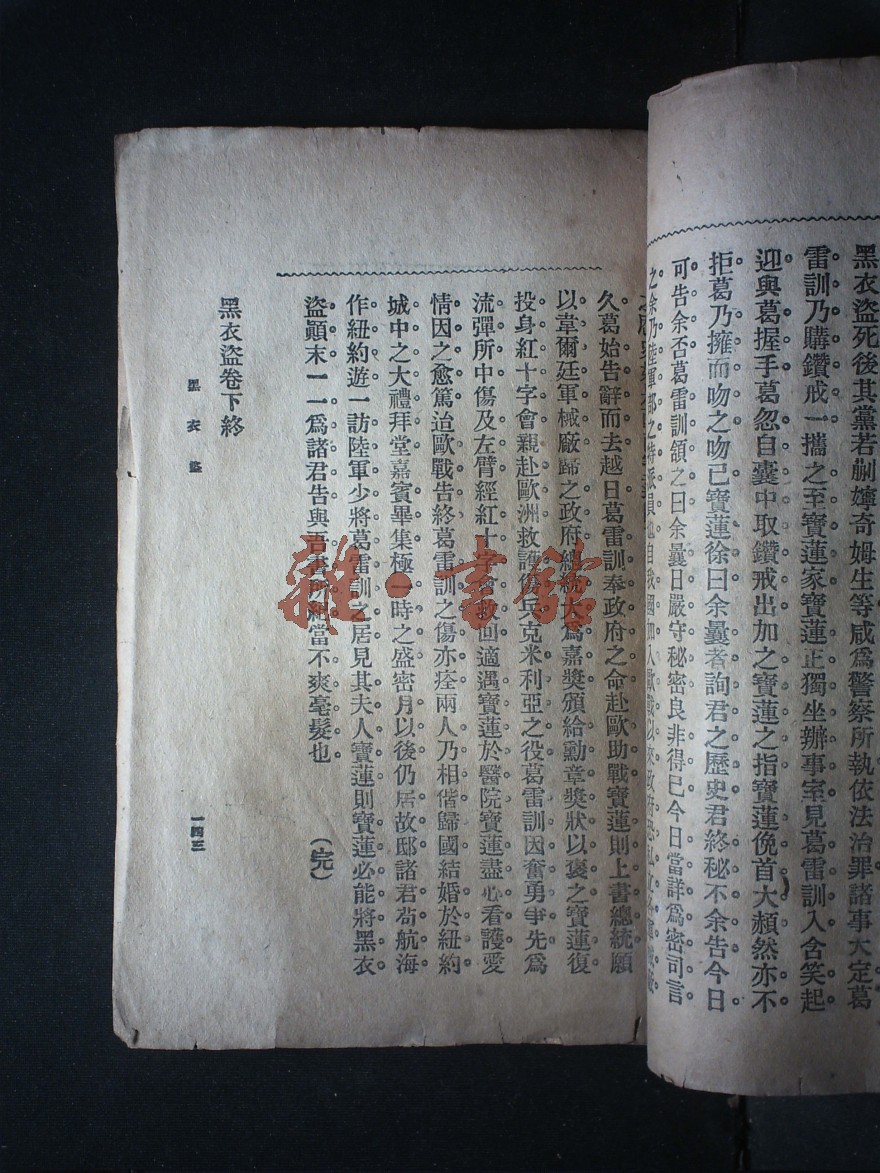 黑衣盜死後其黨若蒯嬸奇姆生等咸爲警察所執依法治罪諸事大定葛
雷訓乃購鑽戒一攜之至寶蓮家寶蓮正獨坐辦事室見葛雷訓入含笑起
迎與葛握手葛忽自囊中取鑽戒出加之寶蓮之指寶蓮俛首大赬然亦不
拒葛乃擁而吻之吻已寶蓮徐曰余曩者詢君之歷史君終秘不余告今日
可告余否葛雷訓頷之曰余曩日嚴守秘密良非得已今日當詳爲密司言
之余乃陸軍部之特派員也自我國加入歐戰以來政府
久葛始告辭而去越日葛雷訓奉政府之命赴歐助戰寶蓮則上書總統願
以韋爾廷軍械廠歸之政府總統大爲嘉獎頒給勳章獎狀以褒之寶蓮復
投身紅十字會親赴歐洲救護傷兵克米利亞之役葛雷訓因奮勇爭先爲
流彈所中傷及左臂經紅十字會救回適遇寶蓮於醫院寶蓮盡心看護愛
情因之愈篤迨歐戰告終葛雷訓之傷亦痊兩人乃相偕歸國結婚於紐約
城中之大禮拜堂嘉賓畢集極一時之盛密月以後仍居故邸諸君苟航海
作紐約遊一訪陸軍少將葛雷訓之居見其夫人寶蓮則寶蓮必能將黑衣
盜顚末一一爲諸君告與吾書所紀當不爽毫髮也
(完)
黑衣盜卷下終
黑衣盜
一四三
雜·書館